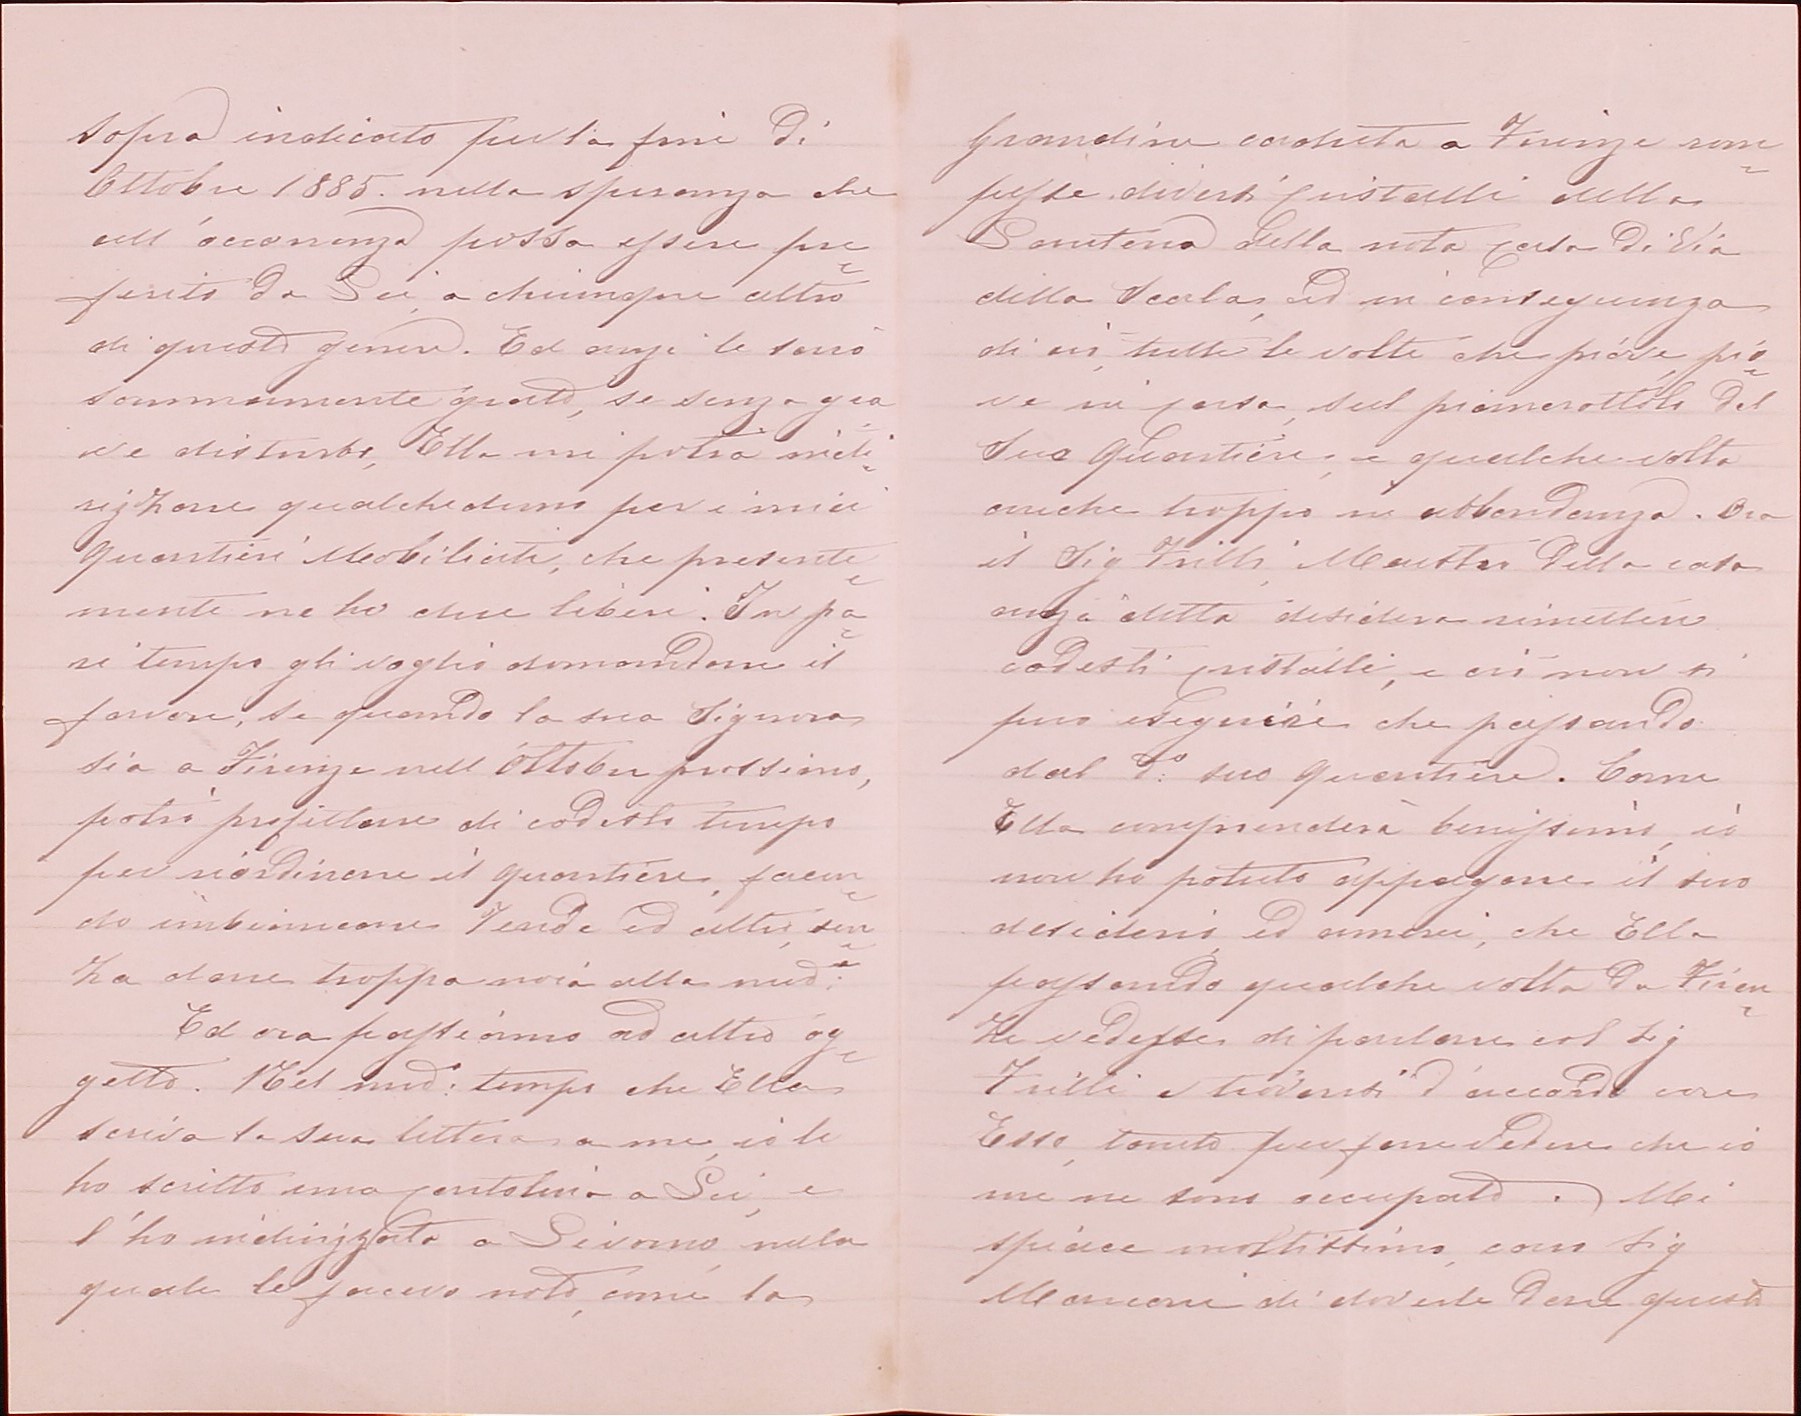 sopra indicato per la fine di
Ottobre 1885. nella speranza che
all'occorrenza possa essere pre=
ferito da Lei, a chiunque altro
di questo genere. Ed anzi le sarò
sommamente grato, se senza gra
ve disturbo, Ella mi potrà indi=
rizzare qualcheduno per i miei
Quartieri Mobiliati, che presente=
mente ne ho due liberi. In pa=
ri tempo gli voglio domandare il
favore, se quando la sua Signora
sia a Firenze nell'Ottobre prossimo,
potrò profittare di codesto tempo
per riordinare il Quartiere, facen=
do imbiancare Tende ed altro, sen=
za dare troppa noia alla med:ª
Ed ora passiamo ad altro og=
getto. Nel med: tempo che Ella
scriva la sua lettera a me, io le
ho scritto una cartolina a Lei, e
l'ho indirizzata a Livorno, nella
quale le facevo noto, come la
Grandine caduta a Firenze rom=
pesse diversi cristalli della
Lanterna della nota casa di Via
della Scala, ed in conseguenza
di ciò, tutte le volte che piove, pio=
ve in casa, sul pianerottolo del
Suo Quartiere, e qualche volta
anche troppo in abbondanza. Ora
il Sig Trilli, Maestro della casa
anzi detta desidera rimettere
codesti cristalli, e ciò non si
puo eseguire che passando
dal d:º suo Quartiere. Come
Ella comprenderà benissimo, io
non ho potuto appagare il suo
desiderio, ed amerei, che Ella
passando qualche volta da Firen=
ze vedesse di parlare col Sig
Trilli e trovarsi d'accordo con
Esso, tanto per fare vedere che io
me ne sono occupato. Mi
spiace moltissimo, caro Sig
Marconi di doverle dare questo